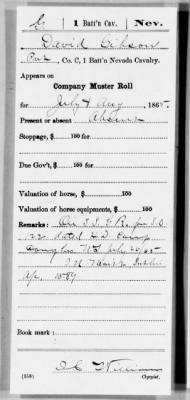 G | 1 Batt'n Cav. | Nev.
David Gibson
Pvt, Co. C, 1 Batt'n Nevada Cavalry.
Appears on
Company Muster Roll
for July & Aug, 1865
Present or absent Absent
Stoppage, $ 100 for
Due Gov't, $ 100 for
Valuation of horse, $ 100
Valuation of horse equipments, $ 100
Remarks: On
122 dated Camp
Douglas July 65
Book mark:
(858) Copyist.